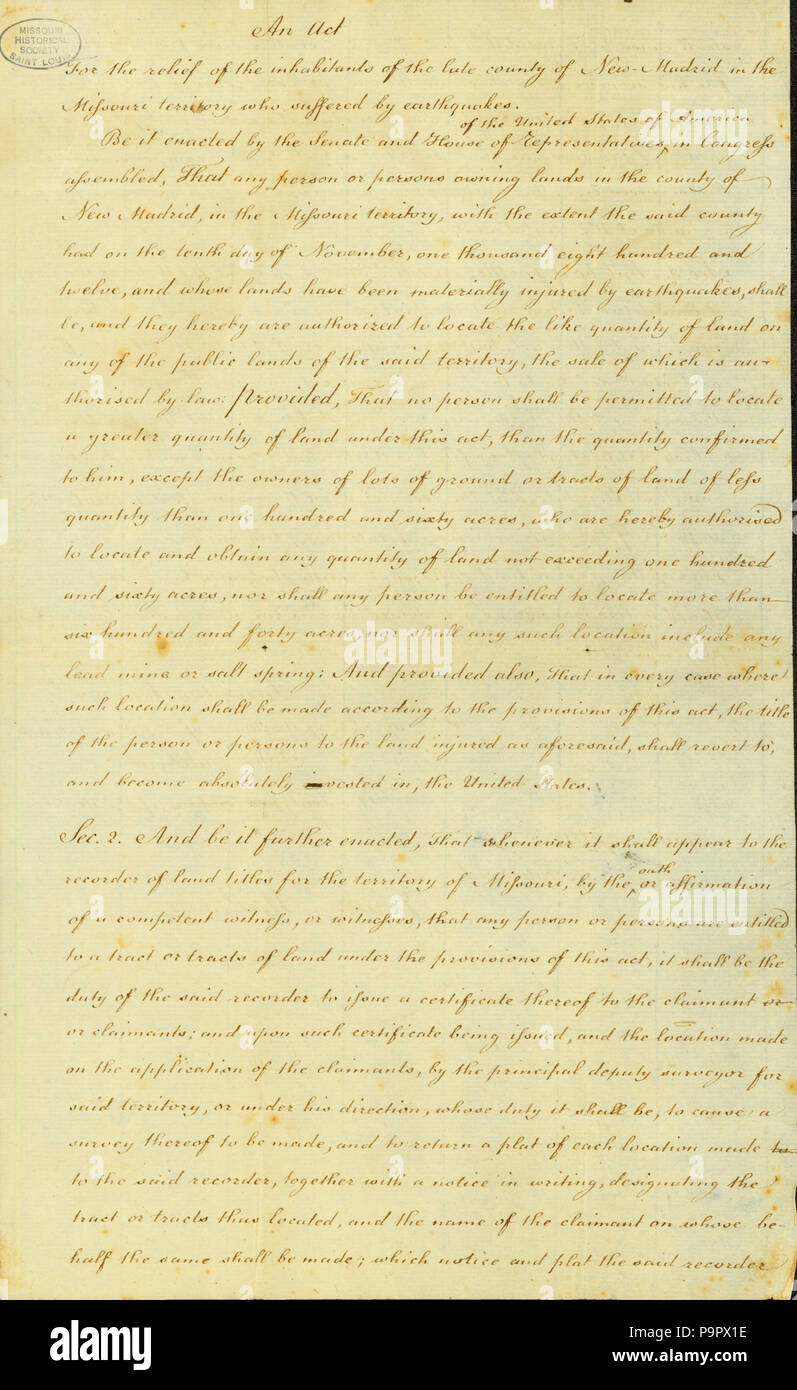 MISSOURI
HISTORICAL
SOCIETY
SAINT LOUIS
An Act
For the relief of the inhabitants of the late county of New-Madrid in the
Missouri territory who suffered by earthquakes.
of the United States of America
Be it enacted by the Senate and House of Representatives, in Congress
assembled, That any person or persons owning lands in the county of
New Madrid, in the Missouri territory, with the extent the said county
had on the tenth day of November, one thousand eight hundred and
twelve, and whose lands have been materially injured by earthquakes, shall
be, and they hereby are authorized to locate the like quantity of land on
any of the public lands of the said territory, the sale of which is au-
thorised by law: Provided, That no person shall be permitted to locate
a greater quantity of land under this act, than the quantity confirmed
to him, except the owners of lots of ground or tracts of land of less
quantity than one hundred and sixty acres, who are hereby authorised
to locate and obtain any quantity of land not exceeding one hundred
and sixty acres, nor shall any person be entitled to locate more than
six hundred and forty acres, nor shall any such location include any
lead mine or salt spring: And provided also, That in every case where
such location shall be made according to the provisions of this act, the title
of the person or persons to the land injured as aforesaid, shall revert to,
and become absolutely vested in, the United States.
Sec. 2. And be it further enacted, That whenever it shall appear to the
oath
recorder of land titles for the territory of Missouri, by the or affirmation
of a competent witness, or witnesses, that any person or persons are entitled
to a tract or tracts of land under the provisions of this act, it shall be the
duty of the said recorder to issue a certificate thereof to the claimant or
or claimants; and upon such certificate being issued, and the location made
on the application of the claimants, by the principal deputy surveyor for
said territory, or under his direction, whose duty it shall be, to cause a
survey thereof to be made, and to return a plat of each location made to
to the said recorder, together with a notice in writing, designating the
tract or tracts thus located, and the name of the claimant on whose be-
half the same shall be made; which notice and plat the said recorder
alamy
Image ID: P9PX1E
www.alamy.com